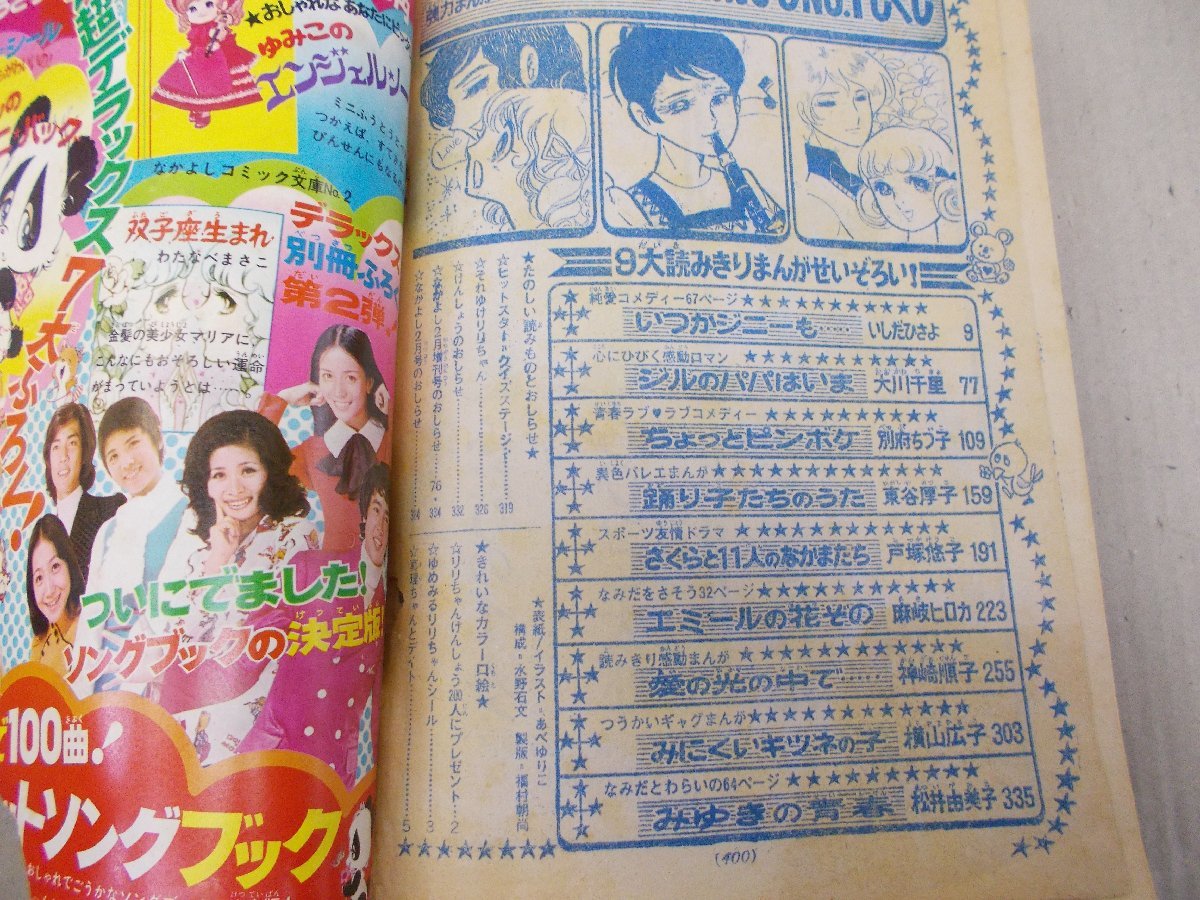 超デラックス7大ふろく!
★おしゃれなあなたにピッ
ゆみこの
エンジェル・ノー
ミニふうとう
つかえば、すてき
びんせんにもなる
なかよしコミック文庫No.2
双子座生まれ
わたなべまさこ
金髪の美少女マリアに、
こんなにもおそろしい運命
がまっていようとは……。
デラックス
別冊ふろく
第2弾
ついにでました!
ソングブックの決定版!
100曲!
トソングブック
9大読みきりまんがせいぞろい!
純愛コメディー67ページ★★★★★★★★★★
いつかジニーも いしだひさよ 9
心にひびく感動ロマン★★★★★★★★★★
ジルのパパはいま 大川千里 77
青春ラブ♥ラブコメディー★★★★★★★★★
ちょっとピンボケ 別府ちづ子 109
異色バレエまんが★★★★★★★★★★★
踊り子たちのうた 東谷厚子 159
スポーツ友情ドラマ★★★★★★★★★★
さくらと11人のなかまたち 戸塚悠子 191
なみだをさそう32ページ★★★★★★★★★
エミールの花ぞの 麻岐ヒロカ 223
読みきり感動まんが★★★★★★★★★★
愛の光の中で…… 神崎順子 255
つうかいギャグまんが★★★★★★★★★
みにくいキツネの子 横山広子 303
なみだとわらいの64ページ★★★★★★★★
みゆきの青春 松井由美子 335
★たのしい読みものとおしらせ★
☆ヒットスタークイズステージ…319
☆それゆけリリちゃん………326
☆けんしょうのおしらせ………332
☆なかよし2月増刊号のおしらせ…76・334
☆なかよし2月号のおしらせ……324
★表紙/イラスト=あべゆりこ
構成=水野石文 製版=橋村朝尚
★きれいなカラー口絵★
☆リリちゃんけんしょう200人にプレゼント…2
☆ゆめみるリリちゃんシール………3
ちゃんとデイト………5
(400)